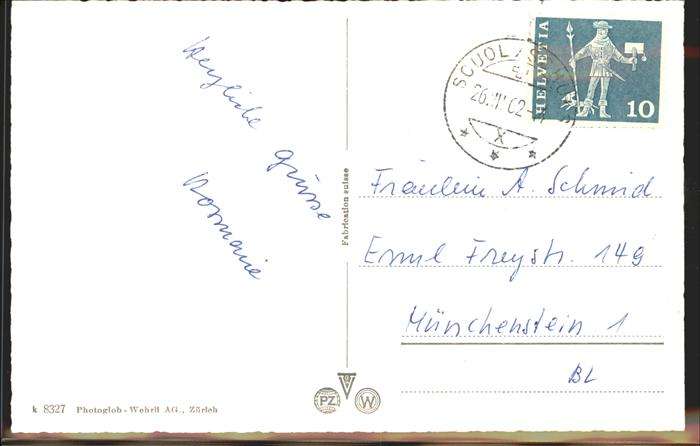 Herzliche
Grüsse
Rosmarie
Fabrication suisse
k 8327 Photoglob-Wehrli AG., Zürich
PZ
W
HELVETIA
10
SCUOL
26.
62
X
Fräulein A. Schmid
Emil Freystr. 149
Münchenstein 1
BL